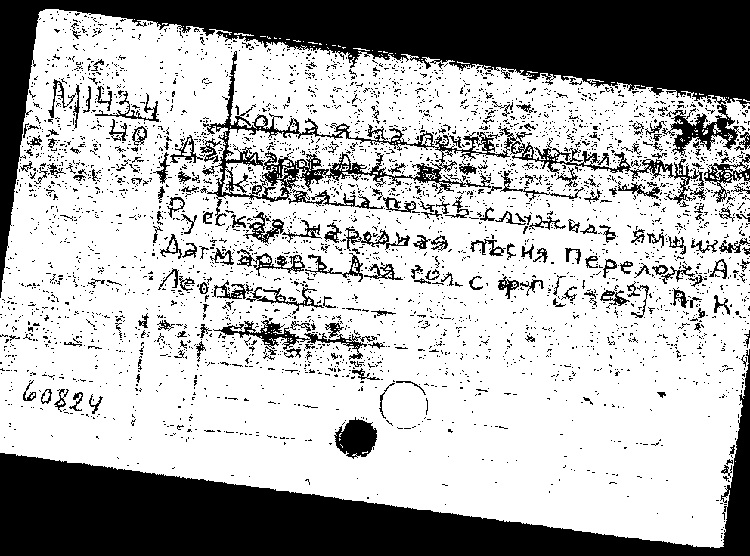 М143.4
40
345
Когда я на почтѣ служилъ ямщикомъ
Дагмаров А.
Когда я на почтѣ служилъ ямщикомъ
Русская народная пѣсня. Перелож. А.
Дагмаровъ. Для гол. с ф-п [c'-es²]. Пг., К.
Леопасъ, б. г.
60824